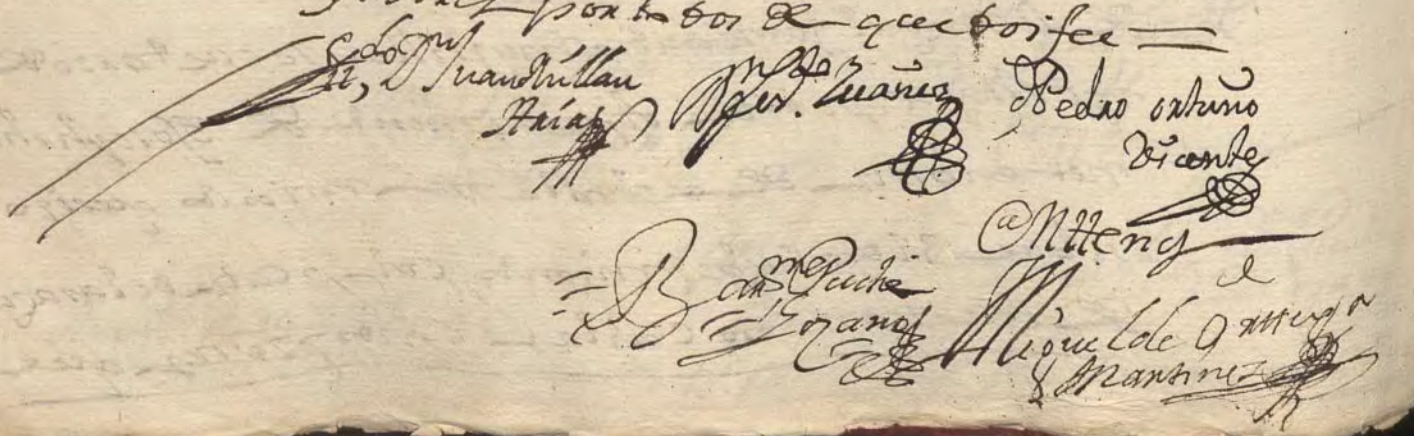 por todos de que doi fee =
Ldo Dn Juan Millan
Arias
Pedro ortuño
Vicente
Ante my
Barme Puche
Lozano
Miguel de Ortega
y Martinez